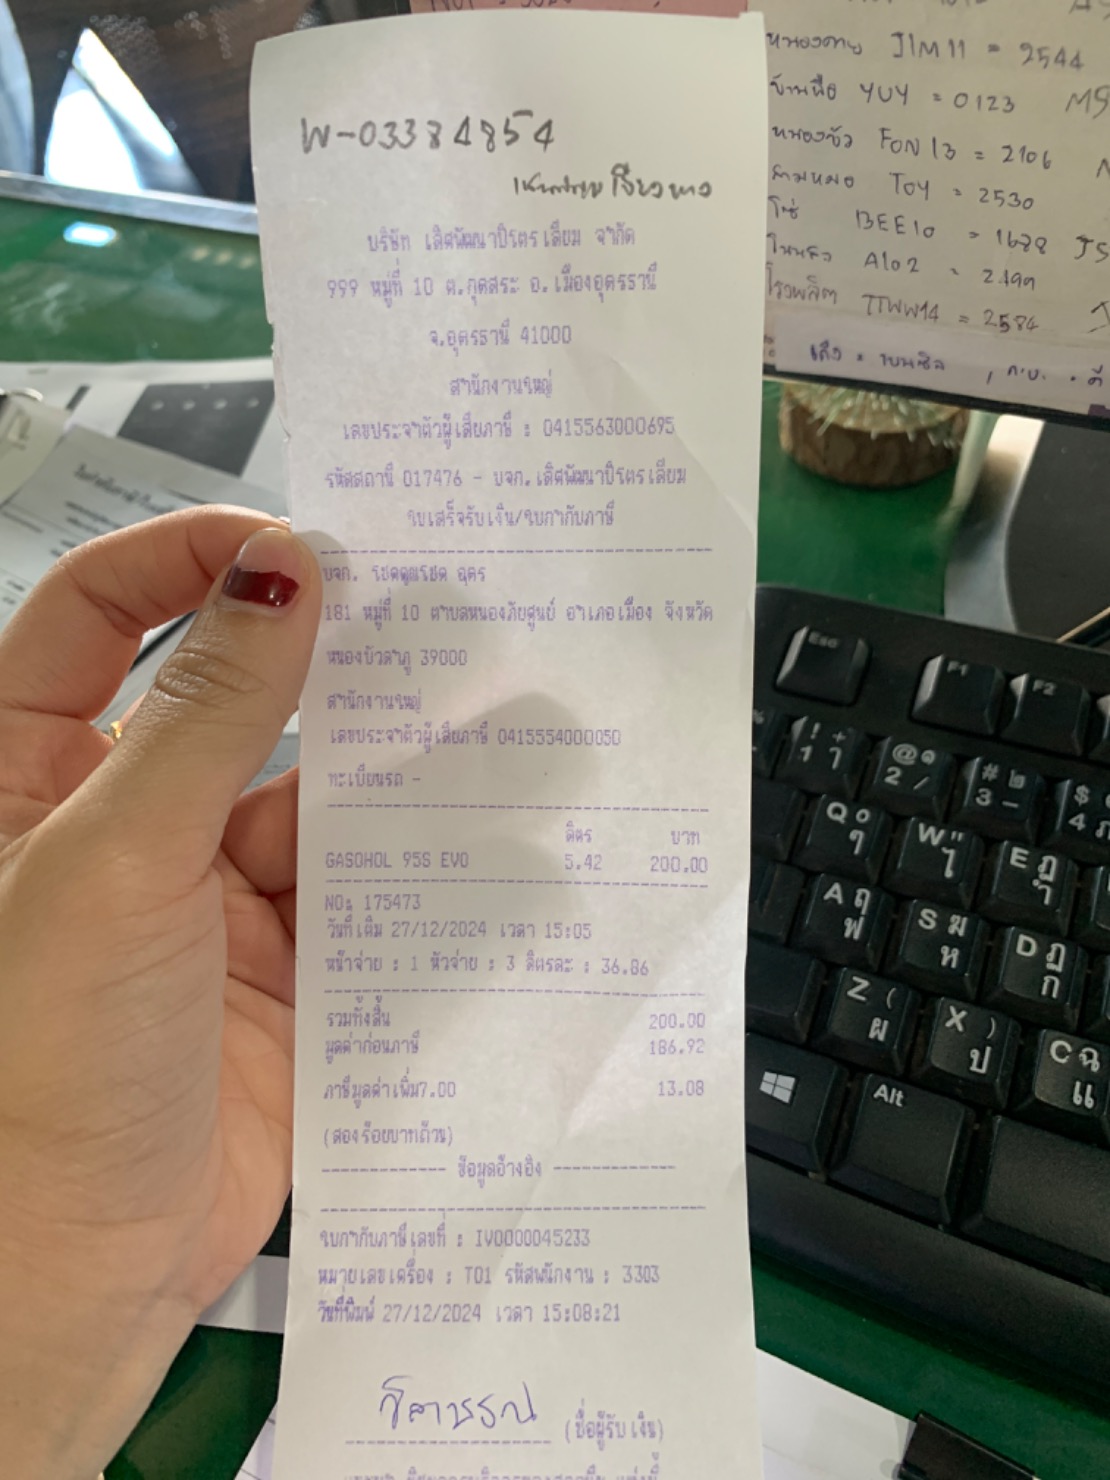 W-03384854
บริษัท เลิศพัฒนาปิโตรเลียม จำกัด
999 หมู่ที่ 10 ต.กุดสระ อ.เมืองอุดรธานี
จ.อุดรธานี 41000
สำนักงานใหญ่
เลขประจำตัวผู้เสียภาษี : 0415563000695
รหัสสถานี 017476 - บจก.เลิศพัฒนาปิโตรเลียม
ใบเสร็จรับเงิน/ใบกำกับภาษี
บจก. โชคคูณโชค อุดร
181 หมู่ที่ 10 ตำบลหนองภัยศูนย์ อำเภอเมือง จังหวัด
หนองบัวลำภู 39000
สำนักงานใหญ่
เลขประจำตัวผู้เสียภาษี 0415554000050
ทะเบียนรถ -
ลิตร บาท
GASOHOL 95S EVO 5.42 200.00
NO: 175473
วันที่เติม 27/12/2024 เวลา 15:05
หน้าจ่าย : 1 หัวจ่าย : 3 ลิตรละ : 36.86
รวมทั้งสิ้น 200.00
มูลค่าก่อนภาษี 186.92
ภาษีมูลค่าเพิ่ม7.00 13.08
(สองร้อยบาทถ้วน)
------------- ข้อมูลอ้างอิง -------------
ใบกำกับภาษีเลขที่ : IV0000045233
หมายเลขเครื่อง : T01 รหัสพนักงาน : 3303
วันที่พิมพ์ 27/12/2024 เวลา 15:08:21
วิลาวรรณ (ชื่อผู้รับเงิน)
หนองคาย JIM11 = 2544
บ้านผือ YUY = 0123
หนองบัว FON13 = 2106
สามหมอ TOY = 2530
BEE10 = 1688
A102 = 2499
TTWW14 = 2584
Esc
F1
F2
Q W E
A S D
Z X C
Alt